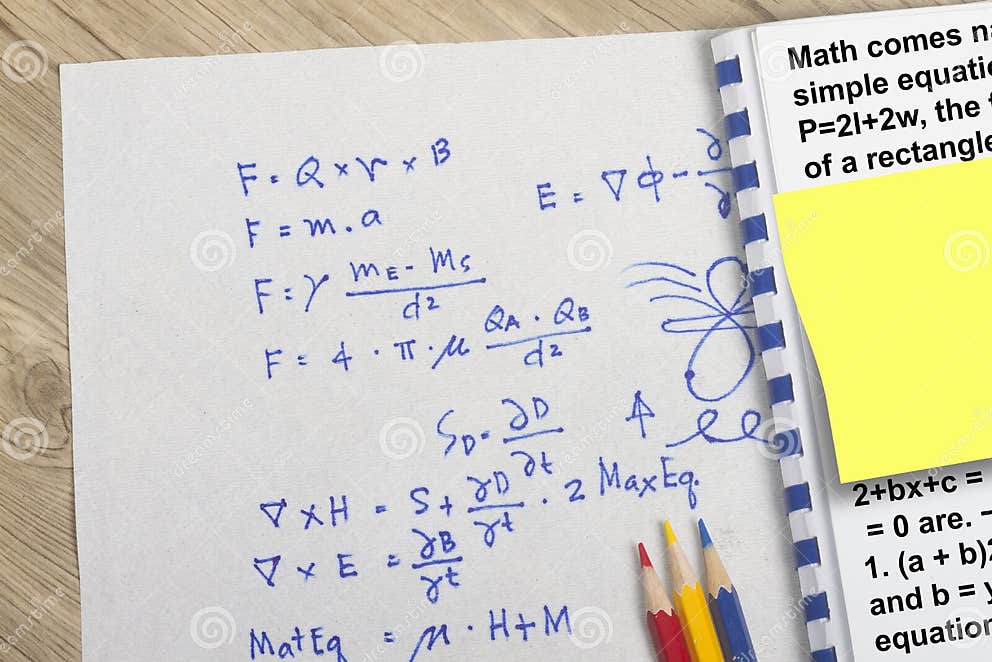 F = Q × r × B
F = m . a
F = γ (mE - mS)/d2
F = 4 . π . μ (QA . QB)/d2
E = ∇ϕ - ∂/∂
SD = ∂D/∂t
∇ × H = S + ∂D/∂t . 2 MaxEq.
∇ × E = ∂B/∂t
MatEq = μ . H + M
Math comes na
simple equatio
P=2l+2w, the
of a rectangle
2+bx+c =
= 0 are.
1. (a + b)2
and b =
equation
dreamstime